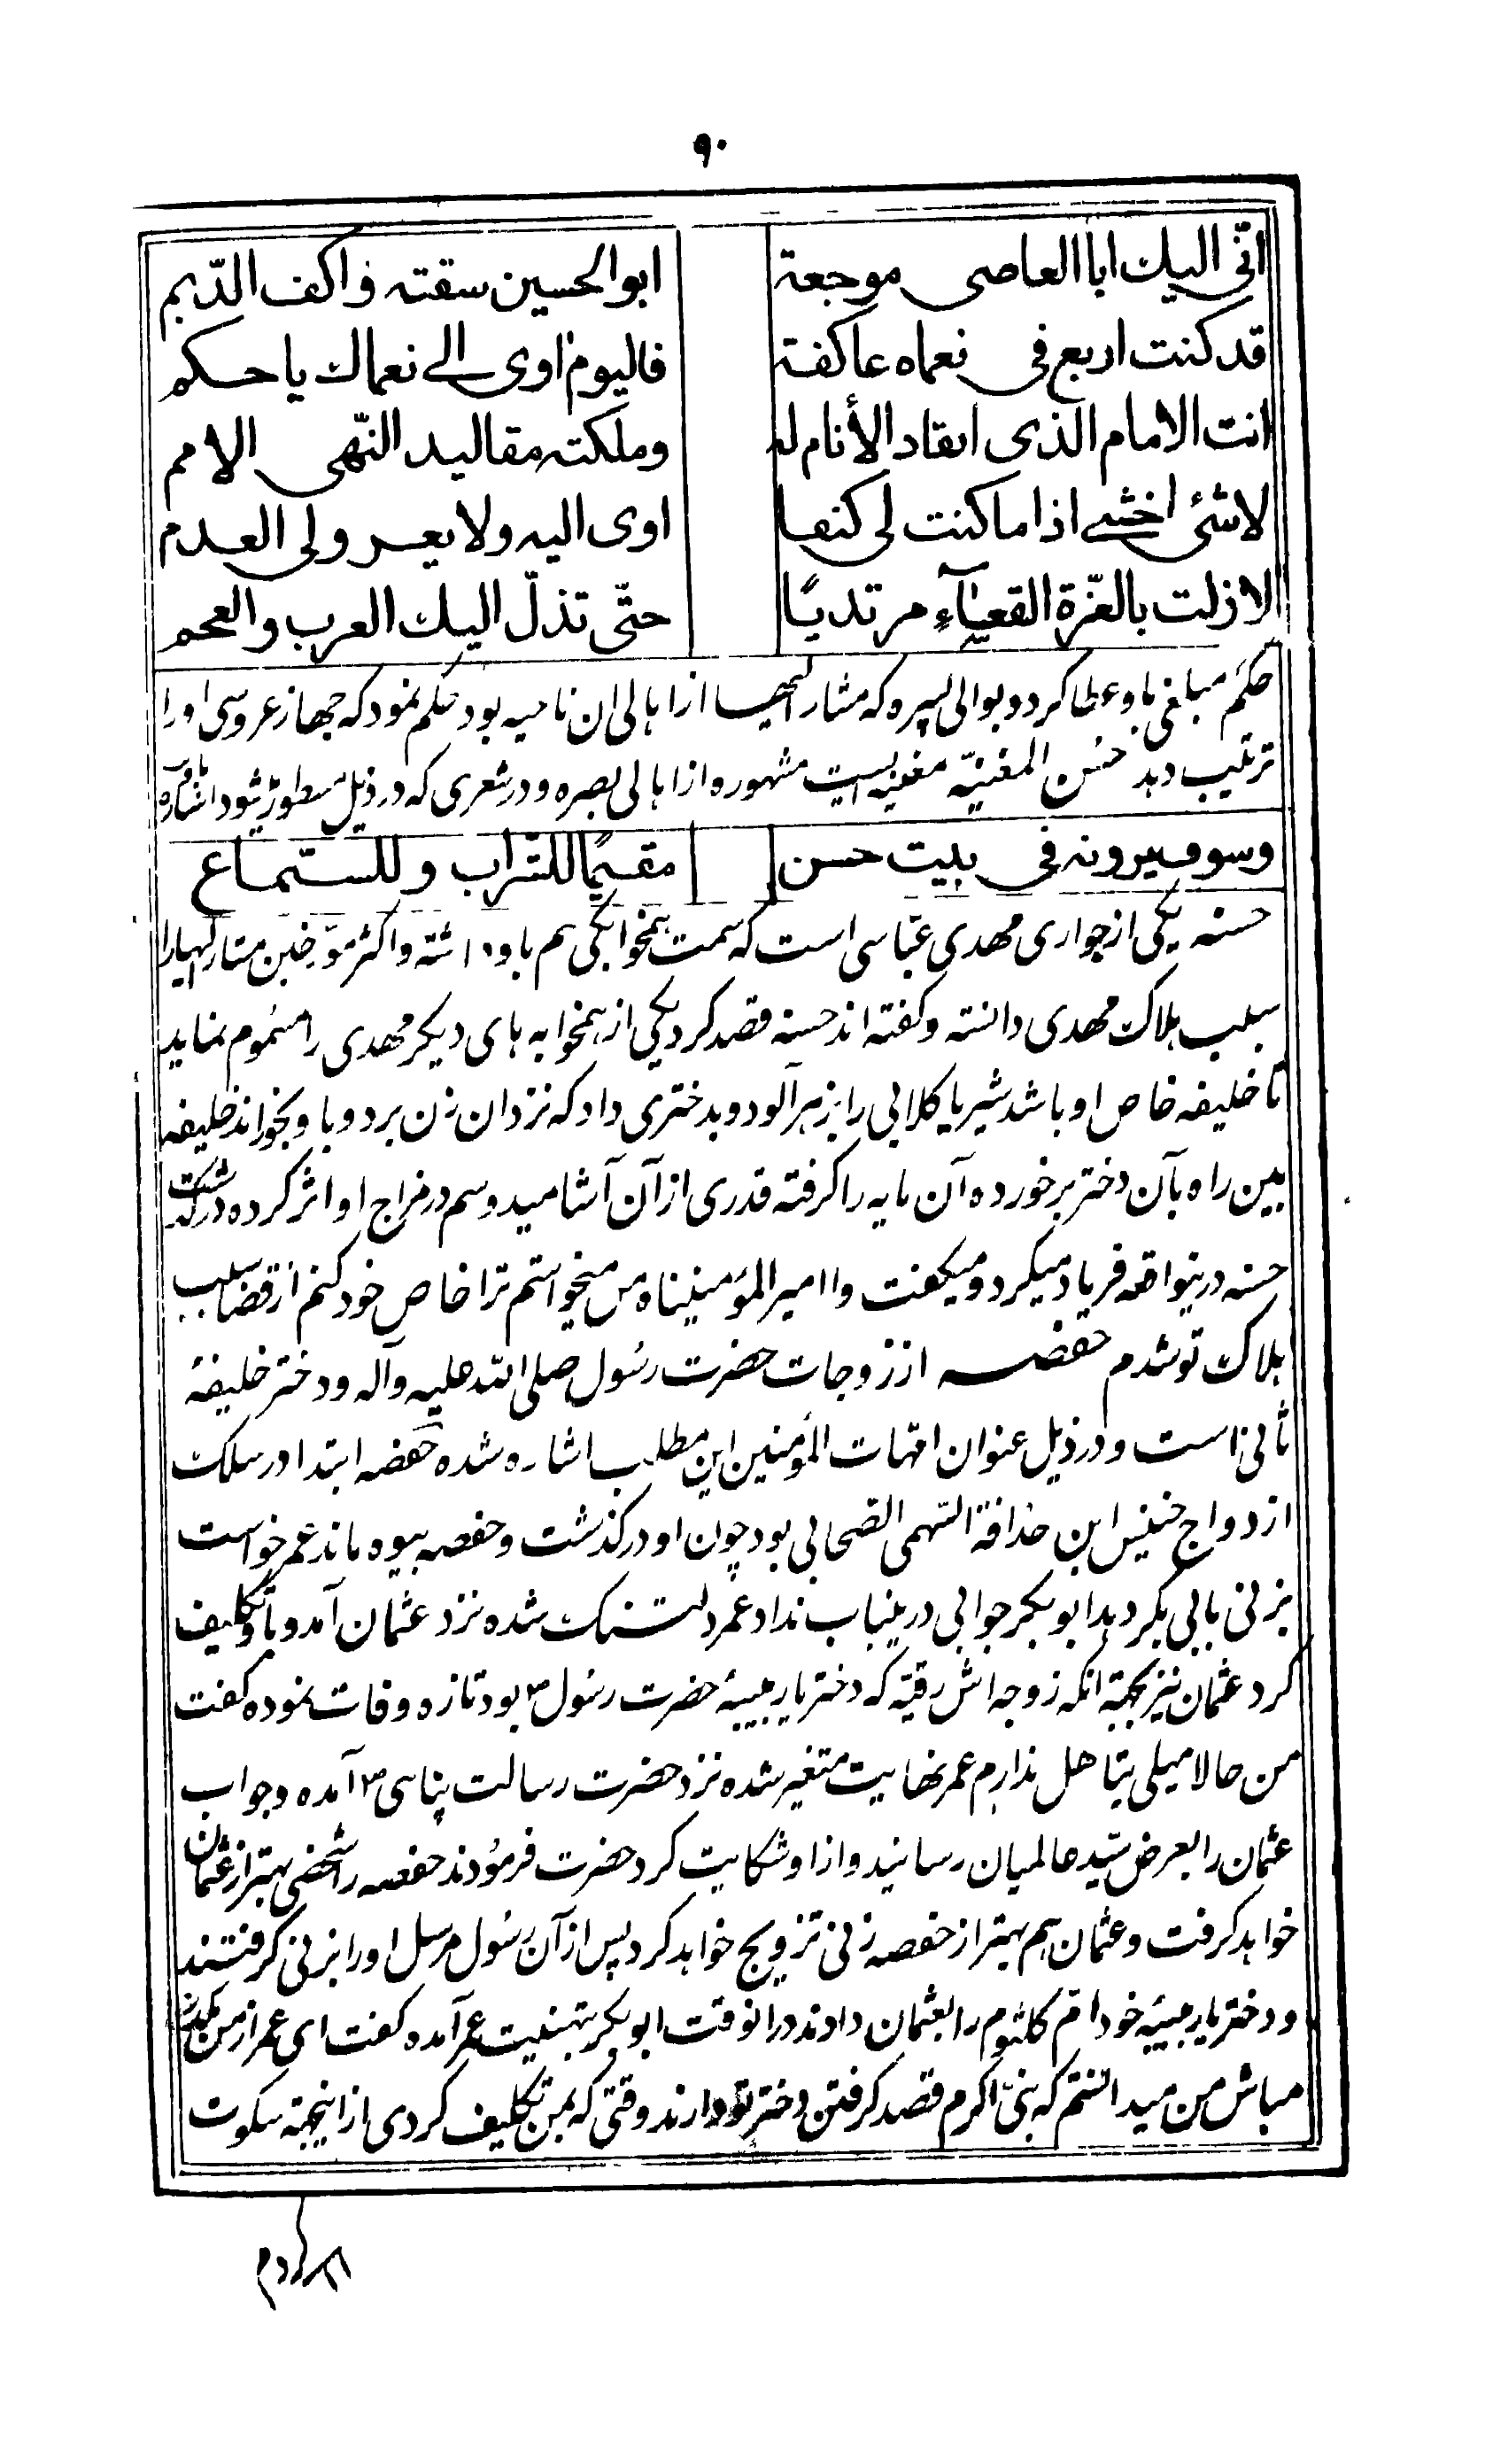 ۹۰
انّی الیك ابا العاصی موجعة ابو الحسین سقته واکف الدّیم
قد کنت اربع فی نعماه عاکفة فالیوم اوی الی نعماك یا حکم
انت الامام الذی انقاد الأنام له وملکته مقالید النّهی الامم
لا شئ اخشی اذا ما کنت لی کنفا اوی الیه ولا یعرولی العدم
لا زلت بالعزّة القعسآء مرتدیًا حتّی تذلّ الیك العرب والعجم
حکم مبلغی باو عطا کرد و بوالی بیره که مشار الیها از اهالی ان ناحیه بود حکم نمود که جهاز عروسی او را
ترتیب دهد حسن المغنیّه مغنیه ایست مشهوره و از اهالی بصره و در شعری که در ذیل مسطور میشود اشاره باوست
وسوف یرونه فی بیت حسن مقیمًا للشراب وللستماع
حسنه یکی از جواری مهدی عبّاسی است که سمت همخوابگی هم باو داشته و اکثر مورّخین مشار الیها را
سبب هلاک مهدی دانسته و کفته اند حسنه قصد کرد یکی از همخوابه های دیکر مهدی را مسموم نماید
تا خلیفه خاص او باشد شیر یا کلابی را بزهر آلود و بدختری داد که نزد ان زن برد و باو بخوراند خلیفه
بین راه بآن دختر برخورده آن مایه را کرفته قدری از آن آشامید و سم در مزاج او اثر کرده درکذشت
حسنه درینواقعه فریاد میکرد و میکفت وا امیر المؤمنیناه من میخواستم ترا خاص خود کنم از قضا سبب
هلاک تو شدم حفصه از زوجات حضرت رسول صلی الله علیه وآله و دختر خلیفهٔ
ثانی است و در ذیل عنوان امّهات المؤمنین این مطلب اشاره شده حفصه ابتدا در سلک
ازدواج خنیس ابن حذافة السّهمی الصّحابی بود چون او درکذشت و حفصه بیوه ماند عمر خواست
بزنی بابی بکر دهد ابو بکر جوابی درینباب نداد عمر دلتنک شده نزد عثمان آمد و باو تکلیف
کرد عثمان نیز بجهة انکه زوجه اش رقیّه که دختر یا ربیبهٔ حضرت رسول ص بود تازه وفات نموده کفت
من حالا میلی بتاهل ندارم عمر نهایت متغیر شده نزد حضرت رسالت پناهی ص آمده و جواب
عثمان را بعرض سیّد عالمیان رسانید و از او شکایت کرد حضرت فرمودند حفصه را شخصی بهتر از عثمان
خواهد کرفت و عثمان هم بهتر از حفصه زنی تزویج خواهد کرد پس از آن رسول مرسل او را بزنی کرفتند
و دختر یا ربیبهٔ خود امّ کلثوم را بعثمان دادند درانوقت ابو بکر بتهنیت عمر آمده کفت ای عمر از من مکدّر
مباش من میدانستم که نبیّ اکرم قصد کرفتن دختر تو دارند وقتی که بمن تکلیف کردی از اینجهة سکوت